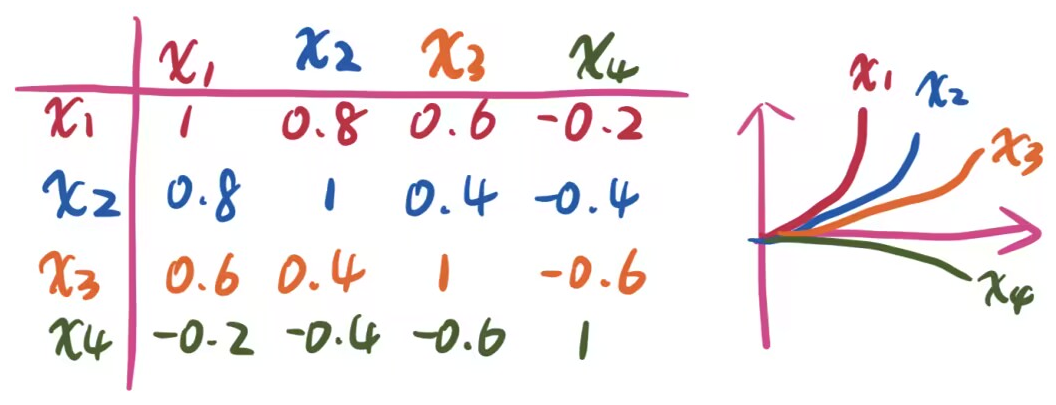 x₁ x₂ x₃ x₄
x₁ 1 0.8 0.6 -0.2
x₂ 0.8 1 0.4 -0.4
x₃ 0.6 0.4 1 -0.6
x₄ -0.2 -0.4 -0.6 1
x₁
x₂
x₃
x₄